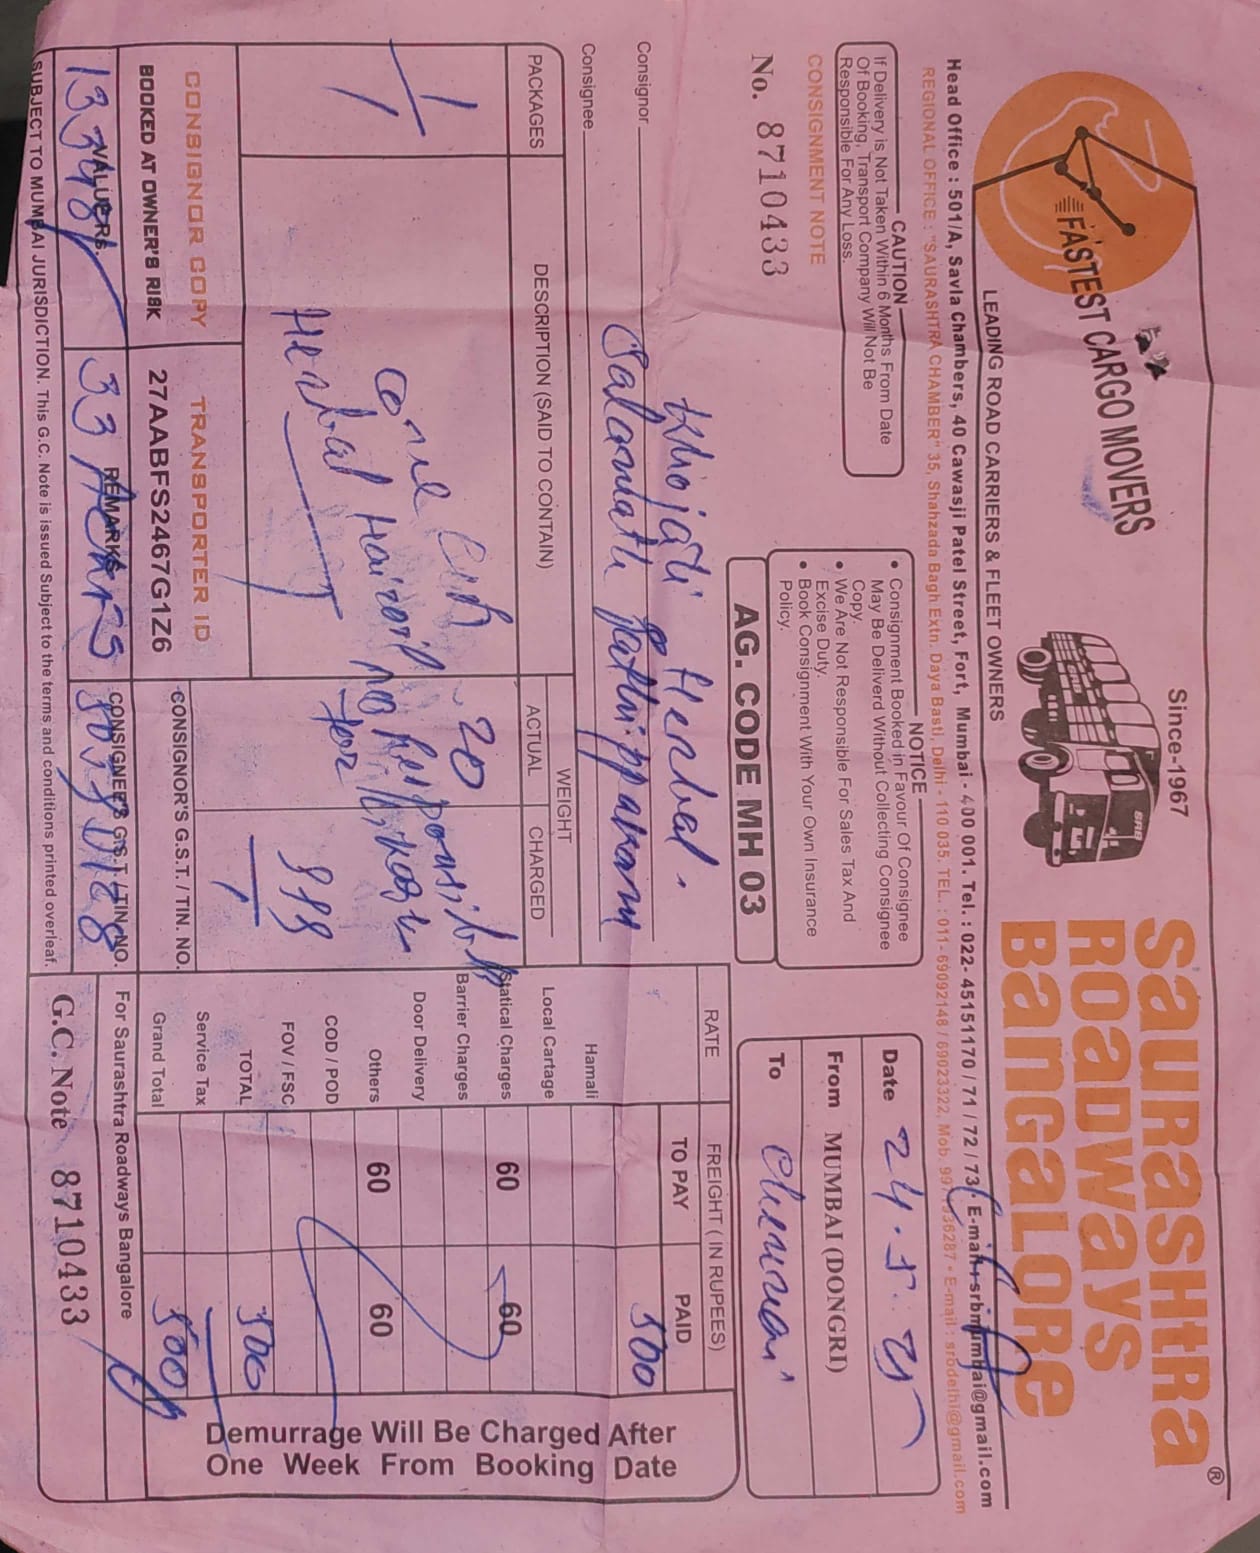 FASTEST CARGO MOVERS
Since-1967
SRB
SAURASHTRA ®
ROADWAYS
BANGALORE
LEADING ROAD CARRIERS & FLEET OWNERS
Head Office : 501/A, Savla Chambers, 40 Cawasji Patel Street, Fort, Mumbai - 400 001. Tel. : 022- 45151170 / 71 / 72 / 73 • E-mail : srbmumbai@gmail.com
REGIONAL OFFICE : "SAURASHTRA CHAMBER" 35, Shahzada Bagh Extn. Daya Basti, Delhi - 110 035. TEL. : 011- 69092148 / 69023322, Mob. • E-mail : srbdelhi@gmail.com
CAUTION
If Delivery is Not Taken Within 6 Months From Date
Of Booking, Transport Company Will Not Be
Responsible For Any Loss.
NOTICE
• Consignment Booked in Favour Of Consignee
May Be Deliverd Without Collecting Consignee
Copy.
• We Are Not Responsible For Sales Tax And
Excise Duty.
• Book Consignment With Your Own Insurance
Policy.
Date 24.5.25
From MUMBAI (DONGRI)
To Chennai
CONSIGNMENT NOTE
No. 8710433
AG. CODE MH 03
Consignor Khojati Herbal.
Consignee Salamath Pathippakam
PACKAGES
DESCRIPTION (SAID TO CONTAIN)
WEIGHT
ACTUAL
CHARGED
RATE
FREIGHT ( IN RUPEES)
TO PAY
PAID
500
Hamali
Local Cartage
Statical Charges 60 60
Barrier Charges
Door Delivery
Others 60 60
COD / POD
FOV / FSC
TOTAL 500
Service Tax
Grand Total 500
1
20
Herbal Hairoil no Responsible
for
CONSIGNOR COPY
TRANSPORTER ID
BOOKED AT OWNER'S RISK
27AABFS2467G1Z6
CONSIGNOR'S G.S.T. / TIN. NO.
VALUE RS.
REMARKS
CONSIGNEE'S G.S.T. / TIN NO.
For Saurashtra Roadways Bangalore
Demurrage Will Be Charged After
One Week From Booking Date
SUBJECT TO MUMBAI JURISDICTION. This G.C. Note is issued Subject to the terms and conditions printed overleaf.
G.C. Note 8710433